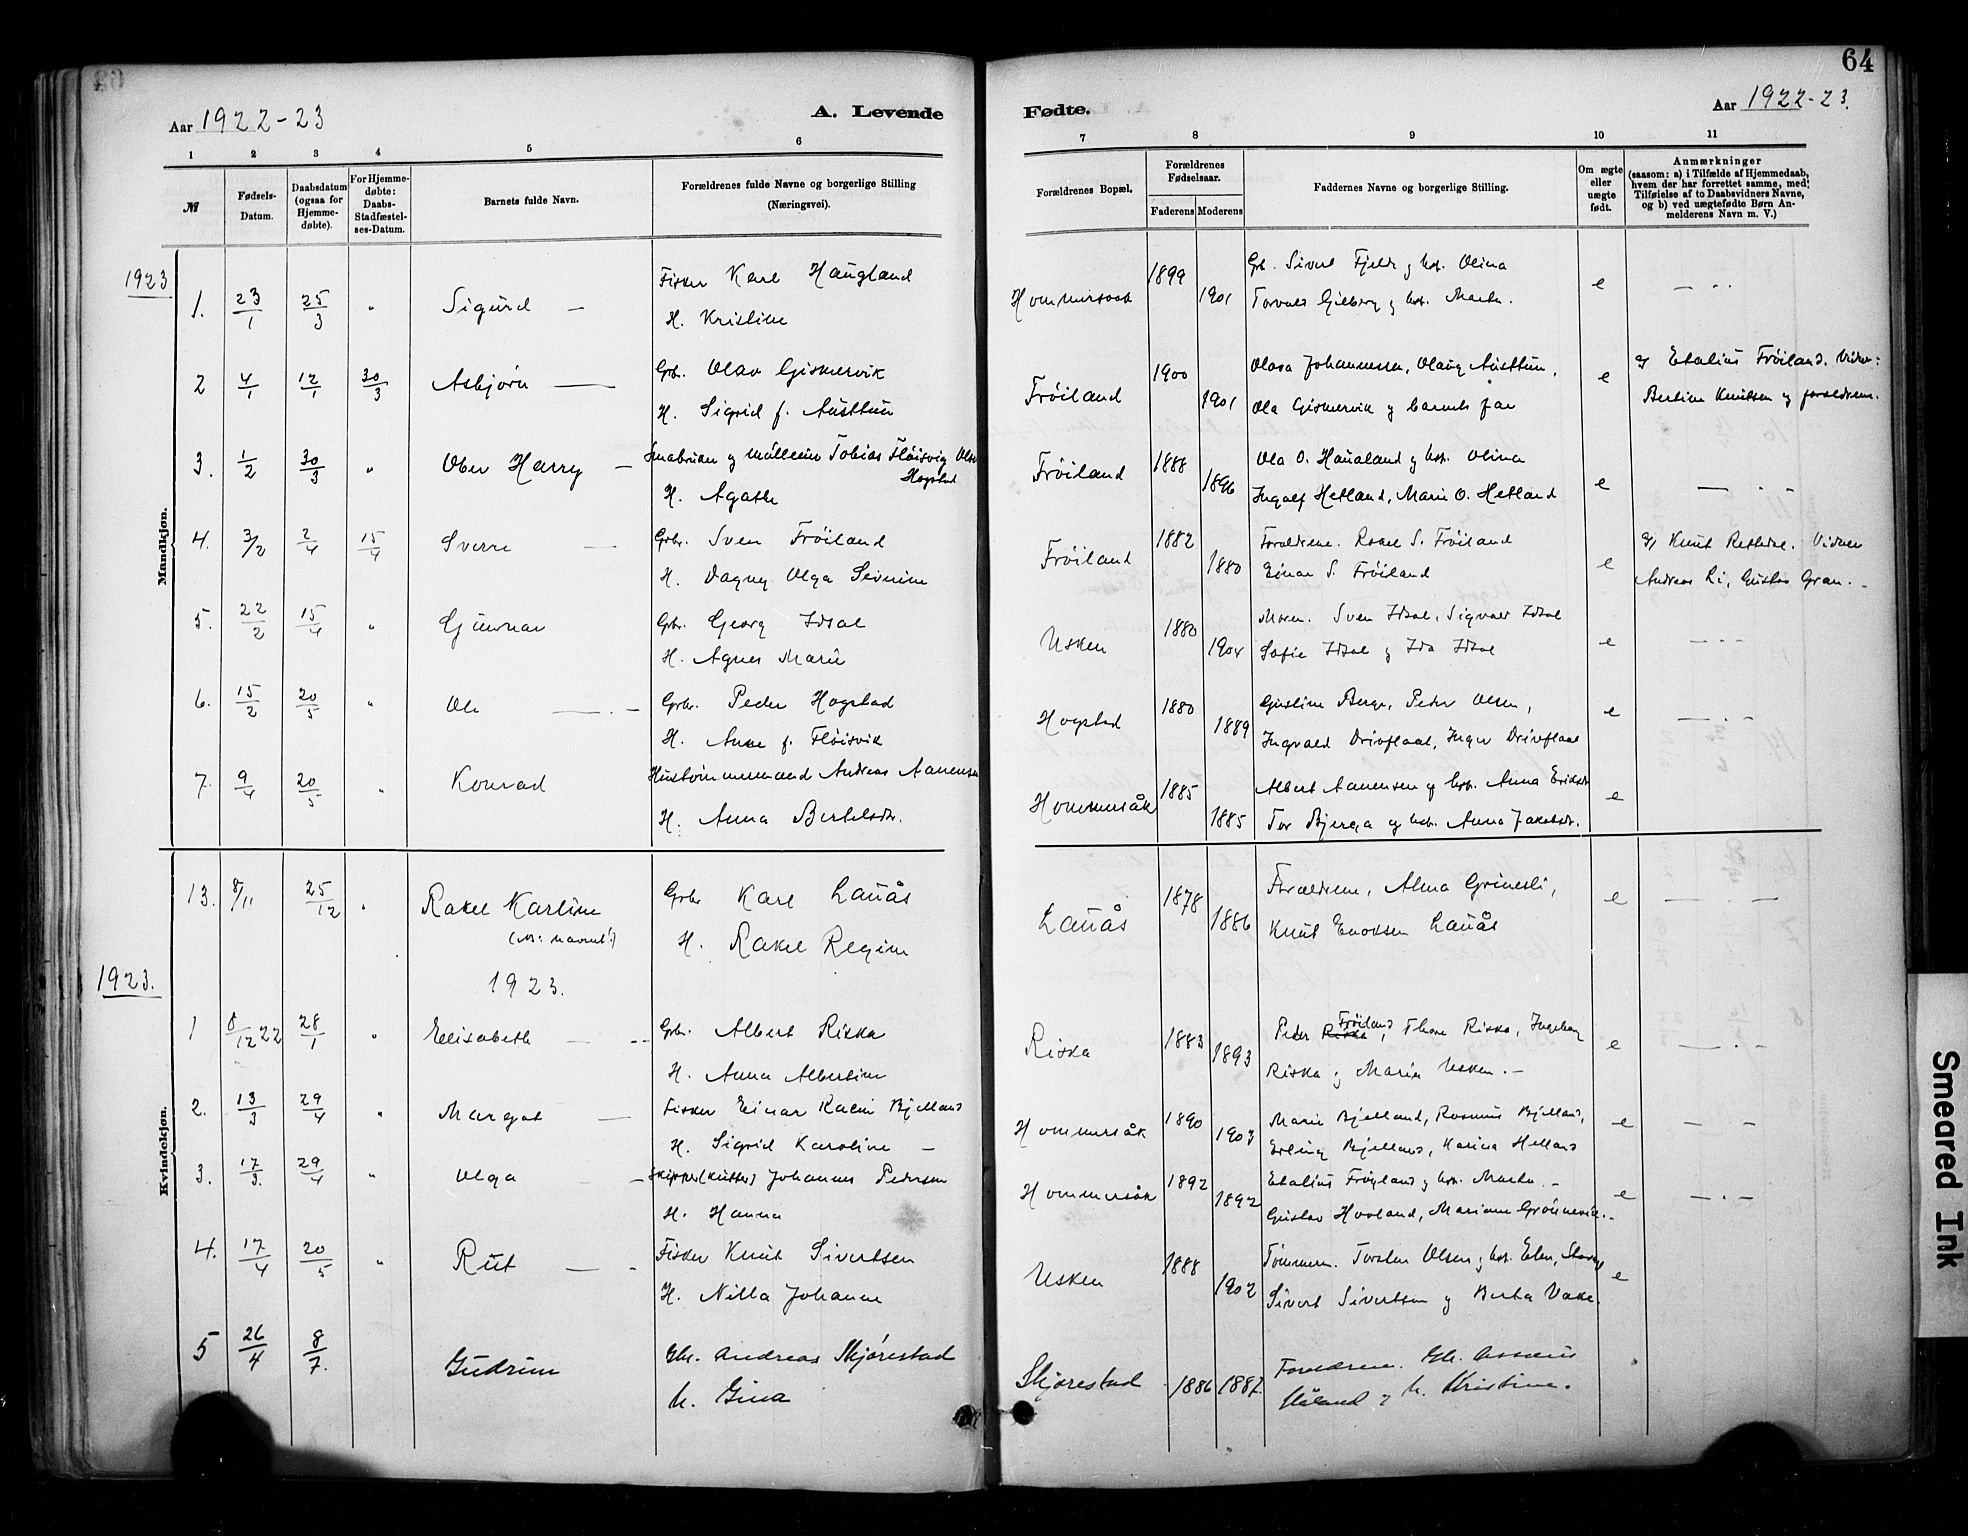 64
Aar 1922-23
A. Levende
Fødte.
Aar 1922-23.
1 2 3 4 5 6
7 8 9 10 11
№
Fødsels-
Datum.
Daabsdatum
(ogsaa for
Hjemme-
døbte).
For Hjemme-
døbte:
Daabs-
Stadfæstel-
ses-Datum.
Barnets fulde Navn.
Forældrenes fulde Navne og borgerlige Stilling
(Næringsvei).
Forældrenes Bopæl.
Forældrenes
Fødselsaar.
Faderens Moderens
Faddernes Navne og borgerlige Stilling.
Om ægte
eller
uægte
født.
Anmærkninger
(saasom: a) i Tilfælde af Hjemmedaab,
hvem der har forrettet samme, med
Tilføielse af to Daabsvidners Navne,
og b) ved uægtefødte Børn An-
melderens Navn m. V.)
Mandkjøn.
1923
1. 23/1 25/3 " Sigurd —
Fisker Karl Haugland
H. Kristine
Hommersaak 1899 1901
Gb. Sivert Fjelde og hst. Olina
Torvald Gjeberg og hst. Marta.
e
2 4/1 12/1 30/3 Asbjørn —
Gbr. Olav Gismervik
H. Sigrid f. Austtun
Frøiland 1900 1901
Olava Johannessen, Olaug Austtun,
Ola Gismervik og barnets far
e
af Etalius Frøiland. Vidner:
Bertine Knutsen og foreldrene.
3. 1/2 30/3 " Harry —
Tobias Fløisvig Olsen
Hogstad
H. Agathe
Frøiland 1888 1896
Ola O. Haualand og hst. Olina
Ingolf Hetland, Marie O. Hetland
e
4. 3/2 2/4 15/4 Sverre —
Gbr. Sven Frøiland
H. Dagny Olga Severine
Frøiland 1882 1880
Foreldrene. Rakel S. Frøiland
Einar S. Frøiland
e
af Knut Restedal. Vidner
Andreas Li, Gustav Gran. -
5. 22/2 15/4 " Gunnar
Gbr. Georg Idsal
H. Agnes Marie
Usken 1880 1904
Moren. Sven Idsal, Sigvald Idsal
Sofie Idsal og Ida Idsal
e
6. 15/2 20/5 " Ole —
Gbr. Peder Hogstad
H. Anne f. Fløisvik
Hogstad 1880 1889
Gustine Berge, Peder Olsen,
Ingvald Drivflaat, Inger Drivflaat
e
7. 9/4 20/5 " Konrad
Hustømmermand Andreas Aanensen
H. Anna Bertelsdr.
Hommersåk 1885 1885
Albert Aanensen og hst. Anna Eriksdr
Tor Bjerga og hst. Anna Jakobsdr.
e
Kvindekjøn.
13. 8/11 25/12 " Rakel Karline
Gbr Karl Lauås
H. Rakel Regine
Lauås 1878 1886
Foreldrene, Alma Grinesli,
Knut Enoksen Lauås
e
1923.
1923.
1 8/12 22 28/1 " Elisabeth —
Gbr. Albert Riska
H. Anna Albertine
Riska 1883 1893
Peder Riska Frøiland, Thore Riska, Ingeborg
Riska og Maria Usken. -
e
2. 13/3 29/4 " Margot —
Fisker Einar Kalin Bjelland
H. Sigrid Karoline -
Hommersåk 1890 1903
Marie Bjelland, Rasmus Bjelland,
Erling Bjelland, Karina Helland
e
3. 17/3. 29/4 " Olga —
Skipper (Kutter) Johannes Pedersen
H. Hanna
Hommersåk 1892 1892
Etalius Frøyland og hst. Marta. -
Gustav Hovland, Mariane Grønnevik. -
e
4. 17/4 20/5 " Rut —
Fisker Knut Sivertsen
H. Nilla Johanne
Usken 1888 1902
Tømmerm. Torsten Olsen og hst. Elen,
Sivert Sivertsen og Berta
e
5 26/4 8/7. Gudrun
Gbr. Andreas Skjørestad
h. Gina
Skjørestad 1886 1887.
Foreldrene. Gbr.
Håland og h. Kristine.
Smeared Ink